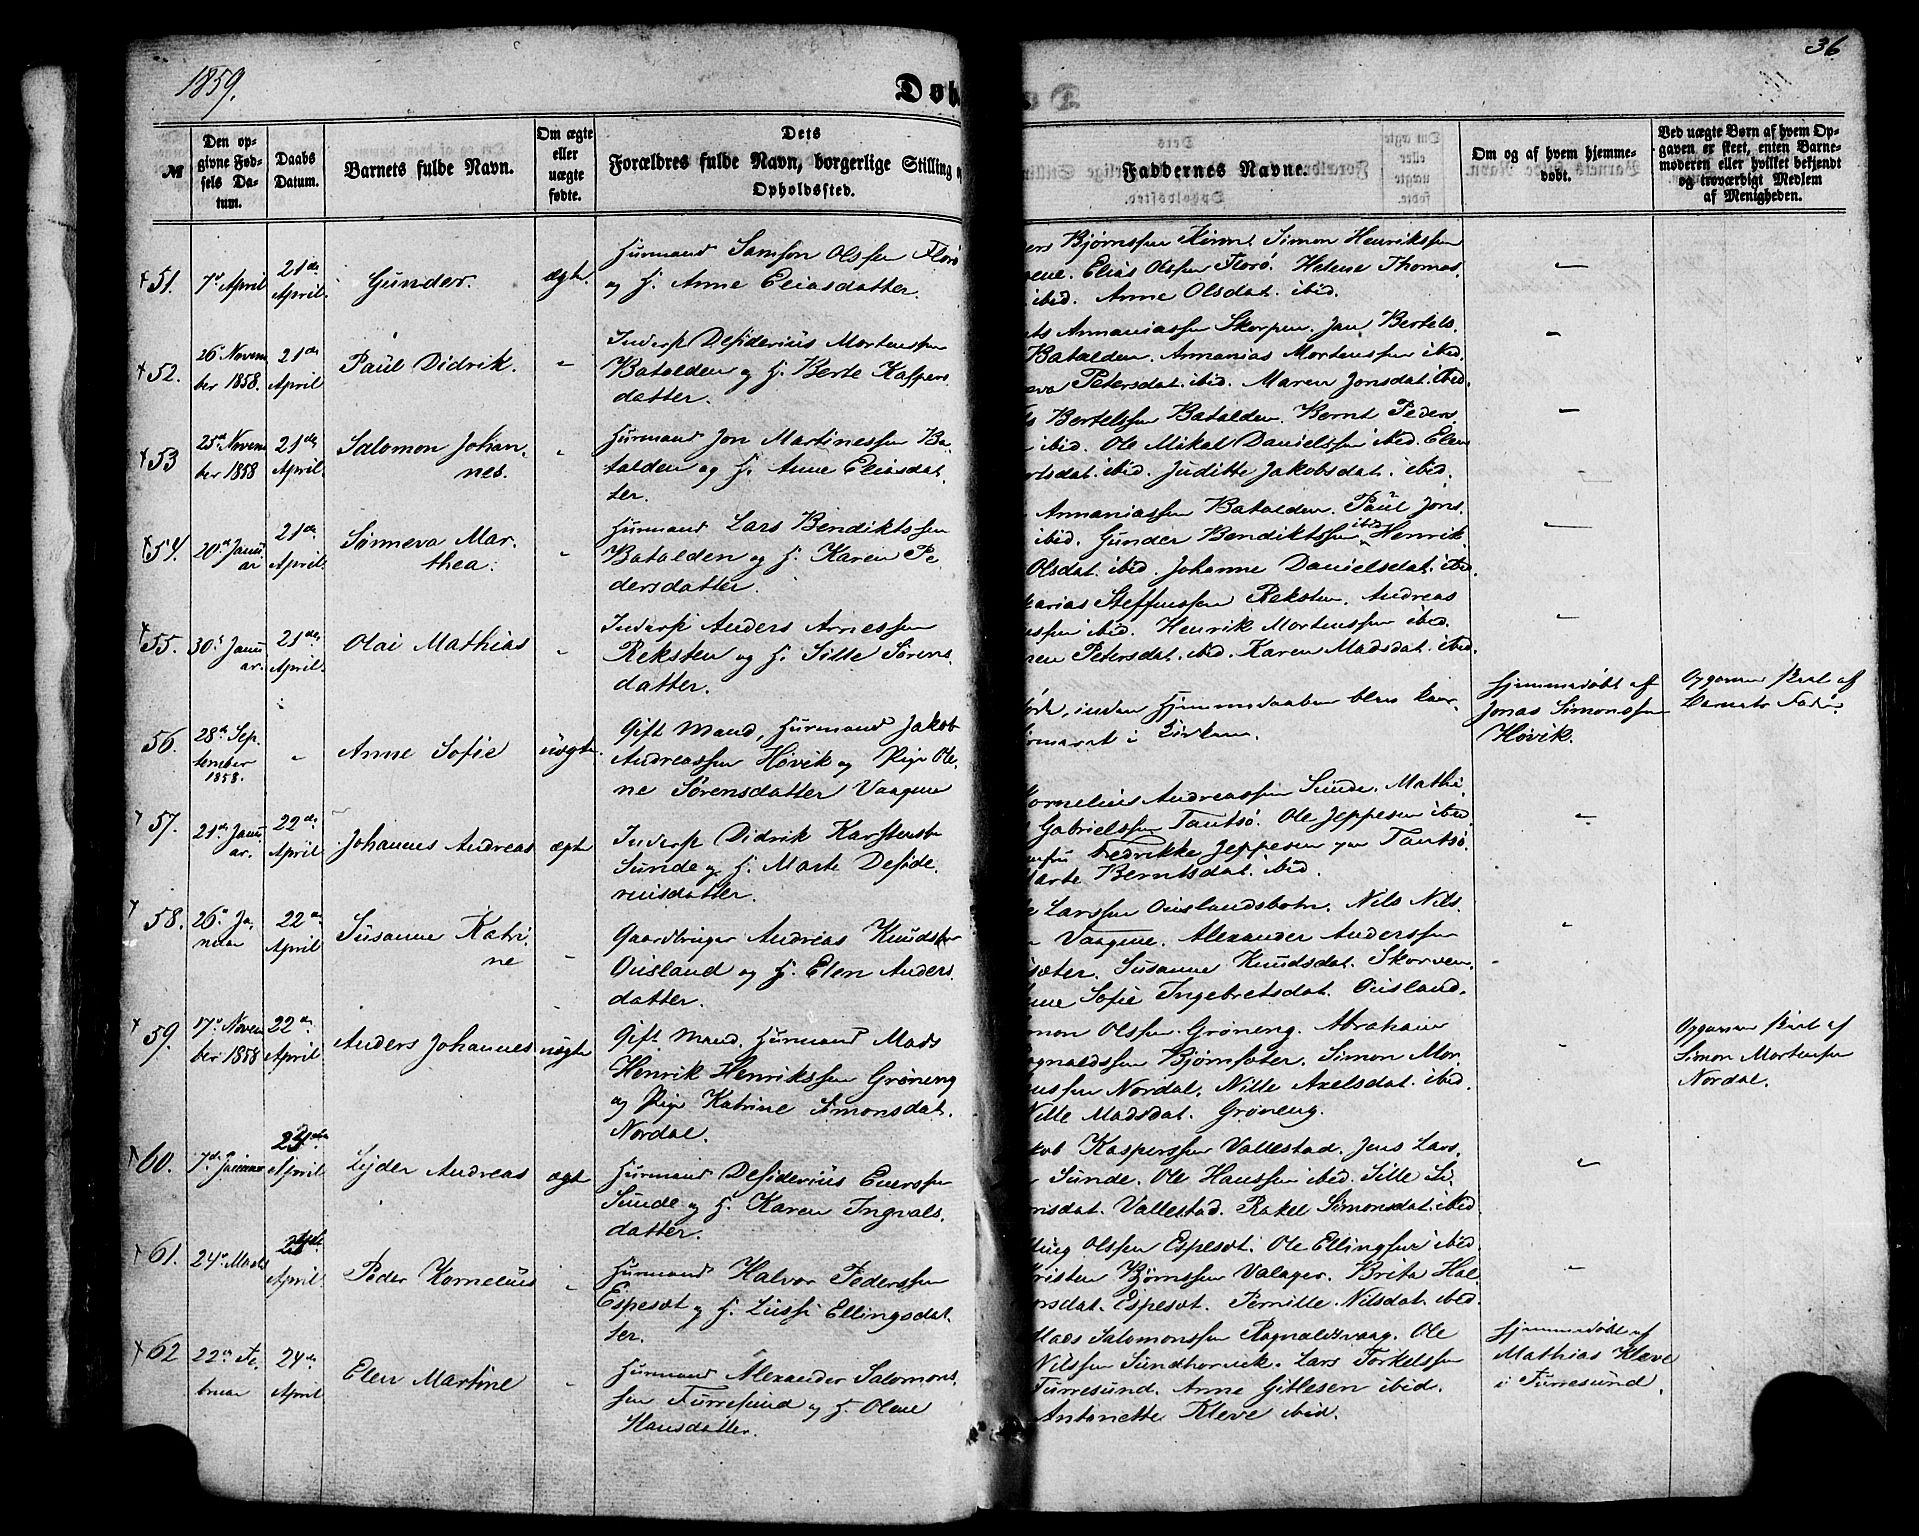 1859.
Døb
36
№
Den opgivne Fødsels Datum.
Daabs Datum.
Barnets fulde Navn.
Om ægte eller uægte fødte.
Dets
Forældres fulde Navn, borgerlige Stilling og
Opholdssted.
Faddernes Navne.
Om og af hvem hjemmedøbt.
Ved uægte Børn af hvem Opgaven er skeet, enten Barnemoderen eller hvilket bekjendt og troværdigt Medlem af Menigheden.
51.
7de April
21de April.
Gunder.
ægt.
Hurmand Samson Olssen Florø
og H. Anne Eliasdatter.
Bjørnssen Kinn. Simon Henrikssen
Elias Olssen Florø. Helene Thomas.
ibid. Anne Olsdat. ibid.
52.
26 November 1858.
21de April
Paul Didrik.
Inderst Desiderius Mortenssen
Batalden og H. Berte Kaspers
datter.
Annaniassen Skorpen. Jan Bertels.
Batalden. Annanias Mortenssen ibid.
Petersdat. ibid. Maren Jonsdat. ibid.
53
25de November 1858
21de April.
Salomon Johan-
nes.
Hurmand Jon Martinessen Ba-
talden og H. Anne Eliasdat
ter.
Bertelssen Batalden. Bernt Peders
ibid. Ole Mikal Danielssen ibid. Elen
ibid. Juditte Jakobsdat. ibid.
54.
20de Januar
21de April.
Sønneva Mar-
thea.
Hurmand Lars Bendiktssen
Batalden og H. Karen Pe
dersdatter.
Annaniassen Batalden. Paul Jons.
ibid. Gunder Bendiktssen ibid Henrik.
Olsdat. ibid. Johanne Danielsdat. ibid.
55.
30te Januar.
21de April
Olai Mathias
Inderst Anders Arnessen
Reksten og H. Sille Sørens
datter.
Steffenssen Reksten. Andreas
ibid. Henrik Mortenssen ibid.
Petersdat. ibid. Karen Madsdat. ibid.
56.
28de September 1858.
Anne Sofie
uægte.
Gift Mand, Hurmand Jakob
Andreassen Høvik og Pige Ole-
ne Sørensdatter Vaagene
inden Hjemmedaaben blev
i Kirken.
Hjemmedøbt af
Jonas Simonssen
Høvik.
Opgaven skeet af
Barnets Fader
57.
21de Januar.
22de April
Johannes Andreas
ægte
Inderst Didrik Karstenssen
Sunde og H. Marte Deside
riusdatter.
Kornelius Andreassen Sunde. Mathi.
Gabrielssen Tautsø. Ole Jeppesen ibid.
Fredrikke Jeppesen Tautsø.
Marte Berntsdat. ibid.
58.
26de Januar
22de April
Susanne Katri-
ne
Gaardbruger Andreas Knudssen
Ousland og H. Elen Anders
datter.
Larssen Ouslandsbotn. Nils Nils.
Vaagene. Alexander Anderssen
Susanne Knudsdat. Skorven.
Sofie Ingebretsdat. Ousland.
59.
17de November 1858
22de April
Anders Johannes
uægte
Gift Mand, Hurmand Mads
Henrik Henrikssen Grøneng
og Pige Katrine Simonsdat.
Nordal.
Olssen Grøneng. Abraham
Bjørnsæter. Simon Mor.
Nordal. Nille Axelsdat. ibid.
Nille Madsdat. Grøneng.
Opgaven skeet af
Simon Mortenssen
Nordal.
60.
7de Januar
April
Lejder Andreas
ægt
Hurmand Desiderius Everssen
Sunde og H. Karen Ingvals.
datter.
Kasperssen Vallestad. Jens Lars.
Sunde. Ole Hanssen ibid. Sille Si
Vallestad. Rakel Simonsdat. ibid
61.
24de Marts
April
Peder Kornelius
Hurmand Halvor Pederssen
Espeset og H. Lussi Ellingsdat
ter.
Olssen Espeset. Ole Ellingsen ibid
Kristen Bjørnssen Valager. Brita Hal-
vorsdat. Espeset. Pernille Nilsdat. ibid.
62
22de Februar
24de April
Elen Martine
Hurmand Alexander Salomons.
sen Furresund og H. Olene
Hansdatter.
Mads Salomonssen Ragnaldsvaag. Ole
Nilssen Sundhorvik. Lars Torkelssen
Furresund. Anne Gitlesen ibid.
Antonette Kleve ibid.
Hjemmedøbt af
Mathias Kleve
i Furresund.